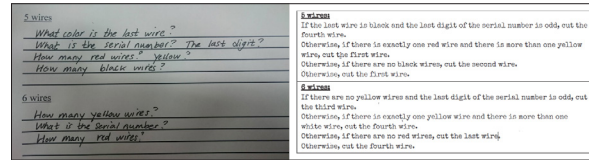 5 wires
What color is the last wire?
What is the serial number? The last digit?
How many red wires? Yellow?
How many black wires?
6 wires
How many yellow wires?
What is the serial number?
How many red wires?
5 wires:
If the last wire is black and the last digit of the serial number is odd, cut the
fourth wire.
Otherwise, if there is exactly one red wire and there is more than one yellow
wire, cut the first wire.
Otherwise, if there are no black wires, cut the second wire.
Otherwise, cut the first wire.
6 wires:
If there are no yellow wires and the last digit of the serial number is odd, cut
the third wire.
Otherwise, if there is exactly one yellow wire and there is more than one
white wire, cut the fourth wire.
Otherwise, if there are no red wires, cut the last wire.
Otherwise, cut the fourth wire.